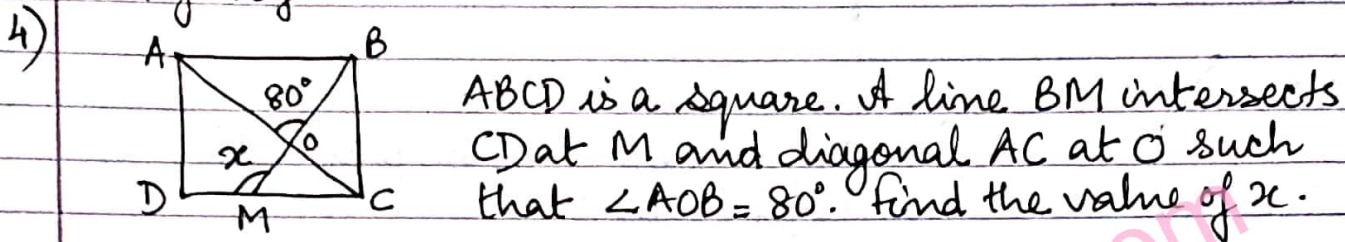 4)
A B
80°
O
x
D M C
ABCD is a square. A line BM intersects
CD at M and diagonal AC at O such
that ∠AOB = 80°. find the value of x.